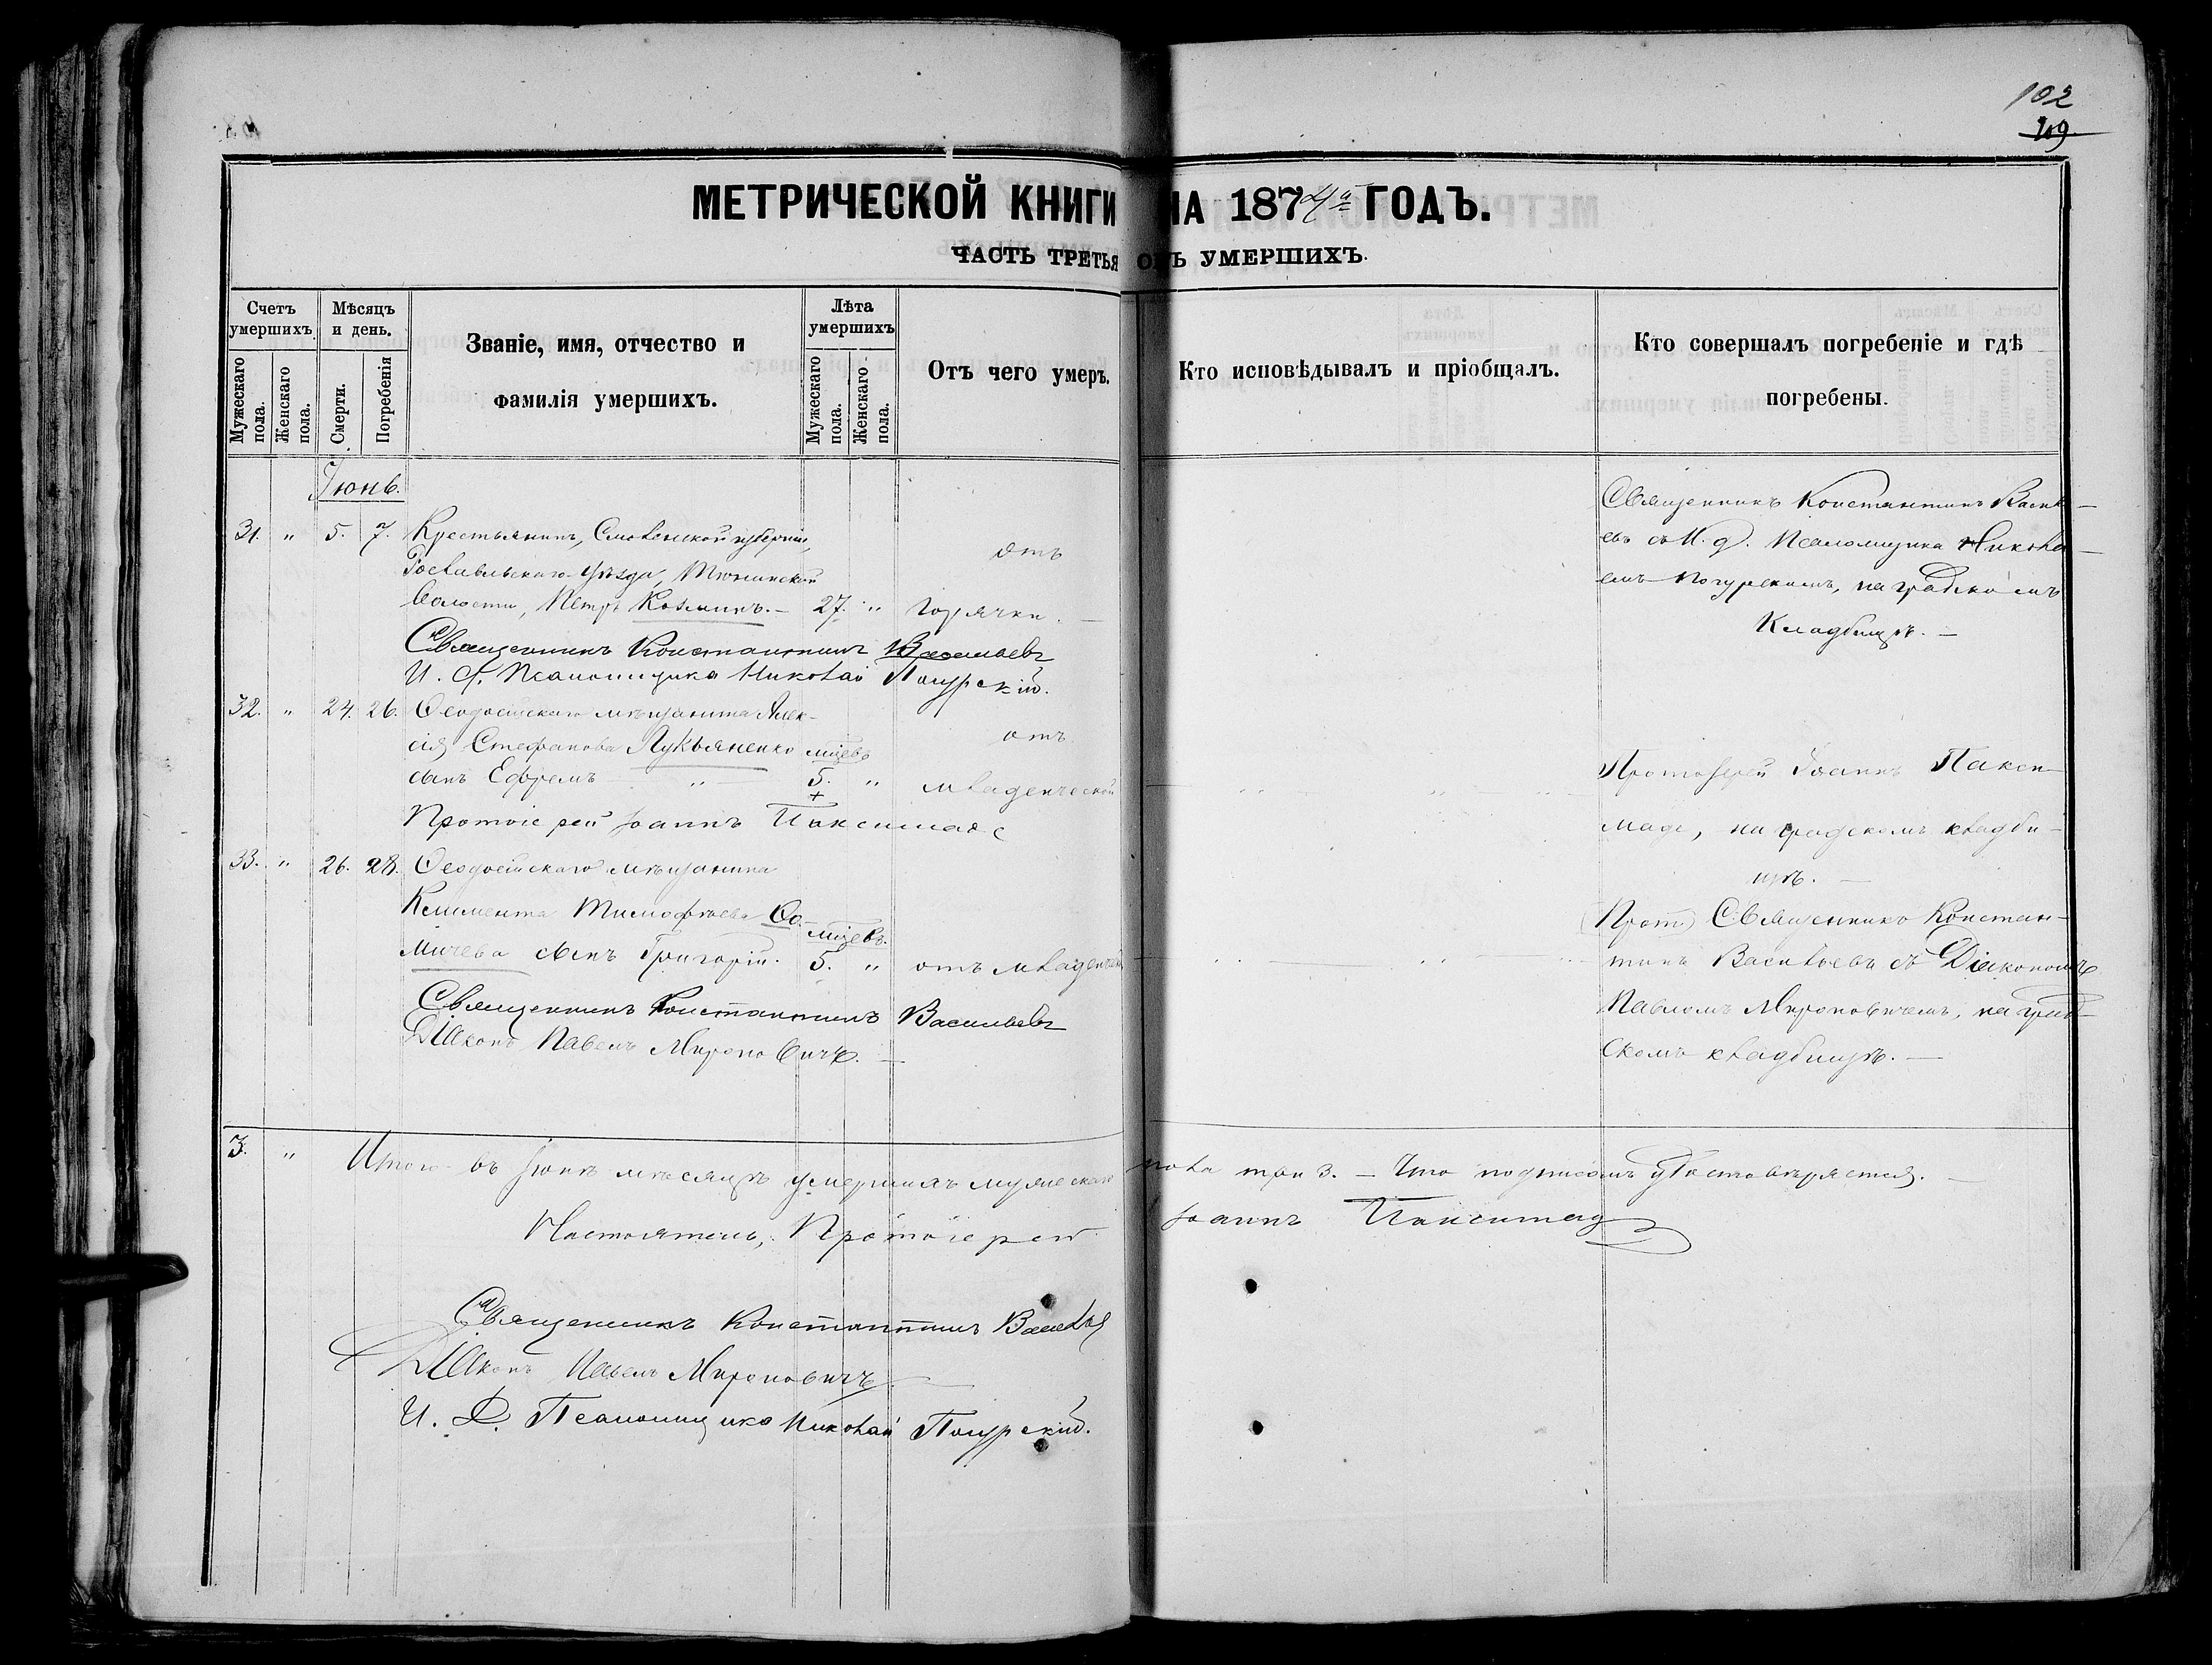 102
109
МЕТРИЧЕСКОЙ КНИГИ НА 1874й ГОДЪ.
ЧАСТЬ ТРЕТЬЯ О УМЕРШИХЪ.
Счетъ умершихъ
Мужескаго пола.
Женскаго пола.
Мѣсяцъ и день.
Смерти.
Погребенія
Званіе, имя, отчество и
фамилія умершихъ.
Лѣта умершихъ
Мужескаго пола.
Женскаго пола.
Отъ чего умеръ.
Кто исповѣдывалъ и пріобщалъ.
Кто совершалъ погребеніе и гдѣ
погребены.
Іюнь.
31. " 5. 7. Крестьянинъ, Смоленской губерніи,
Рославльскаго уѣзда,
волости, Петръ Козминъ. — 27. " отъ горячки. —
Священникъ Константинъ Василь-
евъ съ И. д. Псаломщика Никола-
емъ на градскомъ
Кладбищѣ. —
Священникъ Константинъ Васильевъ
И. д. Псаломщика Николай
32. " 24. 26. Ѳеодосійскаго мѣщанина Алек-
сія Стефанова Лукьяненко мѣцевъ
сынъ Ефремъ " 5. " отъ младенческой
Протоіерей Іоаннъ Пакси-
маде, на градскомъ кладби-
щѣ. —
Протоіерей Іоаннъ Паксимаде
33. " 26. 28. Ѳеодосійскаго мѣщанина
Климента Тимофѣева Ѳо-
мичева сынъ Григорій. мѣцевъ. 5. " отъ младенческ
(Прот) Священникъ Констан-
тинъ Васильевъ съ Діакономъ
Павломъ Мироновичемъ, на град-
скомъ кладбищѣ. —
Священникъ Константинъ Васильевъ
Діаконъ Павелъ Мироновичъ. —
3. " Итого въ Іюнѣ мѣсяцѣ умершихъ мужескаго пола три 3. — Что подписомъ удостовѣряется. —
Настоятель, Протоіерей Іоаннъ Паксимаде
Священникъ Константинъ Васильевъ
Діаконъ Павелъ Мироновичъ
И. Д. Псаломщика Николай